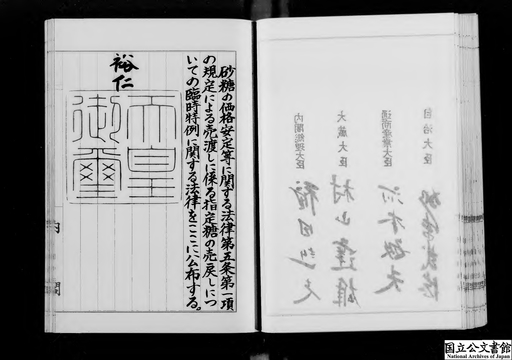 砂糖の価格安定等に関する法律第五条第一項
の規定による売渡しに係る指定糖の売戻しにつ
いての臨時特例に関する法律をここに公布する。
裕仁
天皇
御璽
内閣
内閣総理大臣
大蔵大臣
村山達雄
通商産業大臣
河本敏夫
自治大臣
国立公文書館
National Archives of Japan